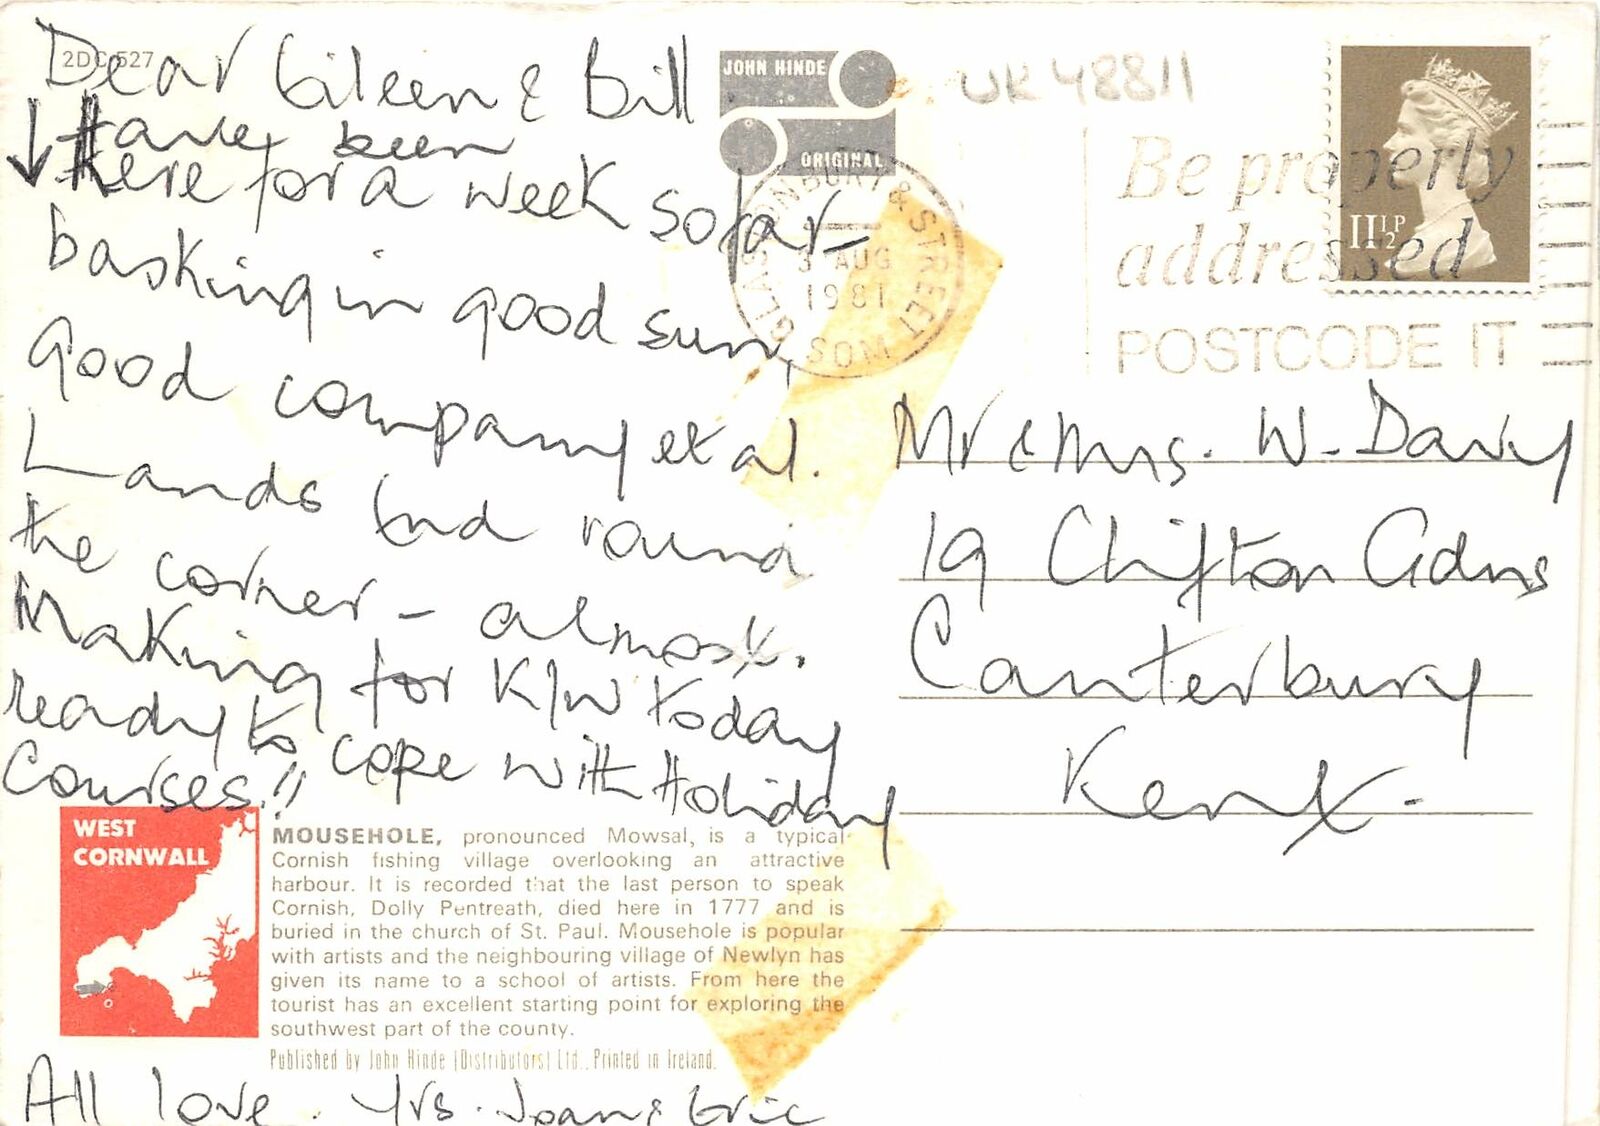 2DC 527
Dear Eileen & Bill.
Have been
here for a week so far –
basking in good sun,
good company et al.
Lands End round
the corner – almost.
Making for K/W today
ready to cope with Holiday
Courses!!
All love. Yrs. Joan & Eric
JOHN HINDE
ORIGINAL
UK 48811
GLASTONBURY & STREET
3 AUG
1981
SOM
Be properly
addressed
POSTCODE IT
11½P
Mr & Mrs. W. Davy
19 Clifton Gdns
Canterbury
Kent.
WEST
CORNWALL
MOUSEHOLE, pronounced Mowsal, is a typical
Cornish fishing village overlooking an attractive
harbour. It is recorded that the last person to speak
Cornish, Dolly Pentreath, died here in 1777 and is
buried in the church of St. Paul. Mousehole is popular
with artists and the neighbouring village of Newlyn has
given its name to a school of artists. From here the
tourist has an excellent starting point for exploring the
southwest part of the county.
Published by John Hinde (Distributors) Ltd., Printed in Ireland.